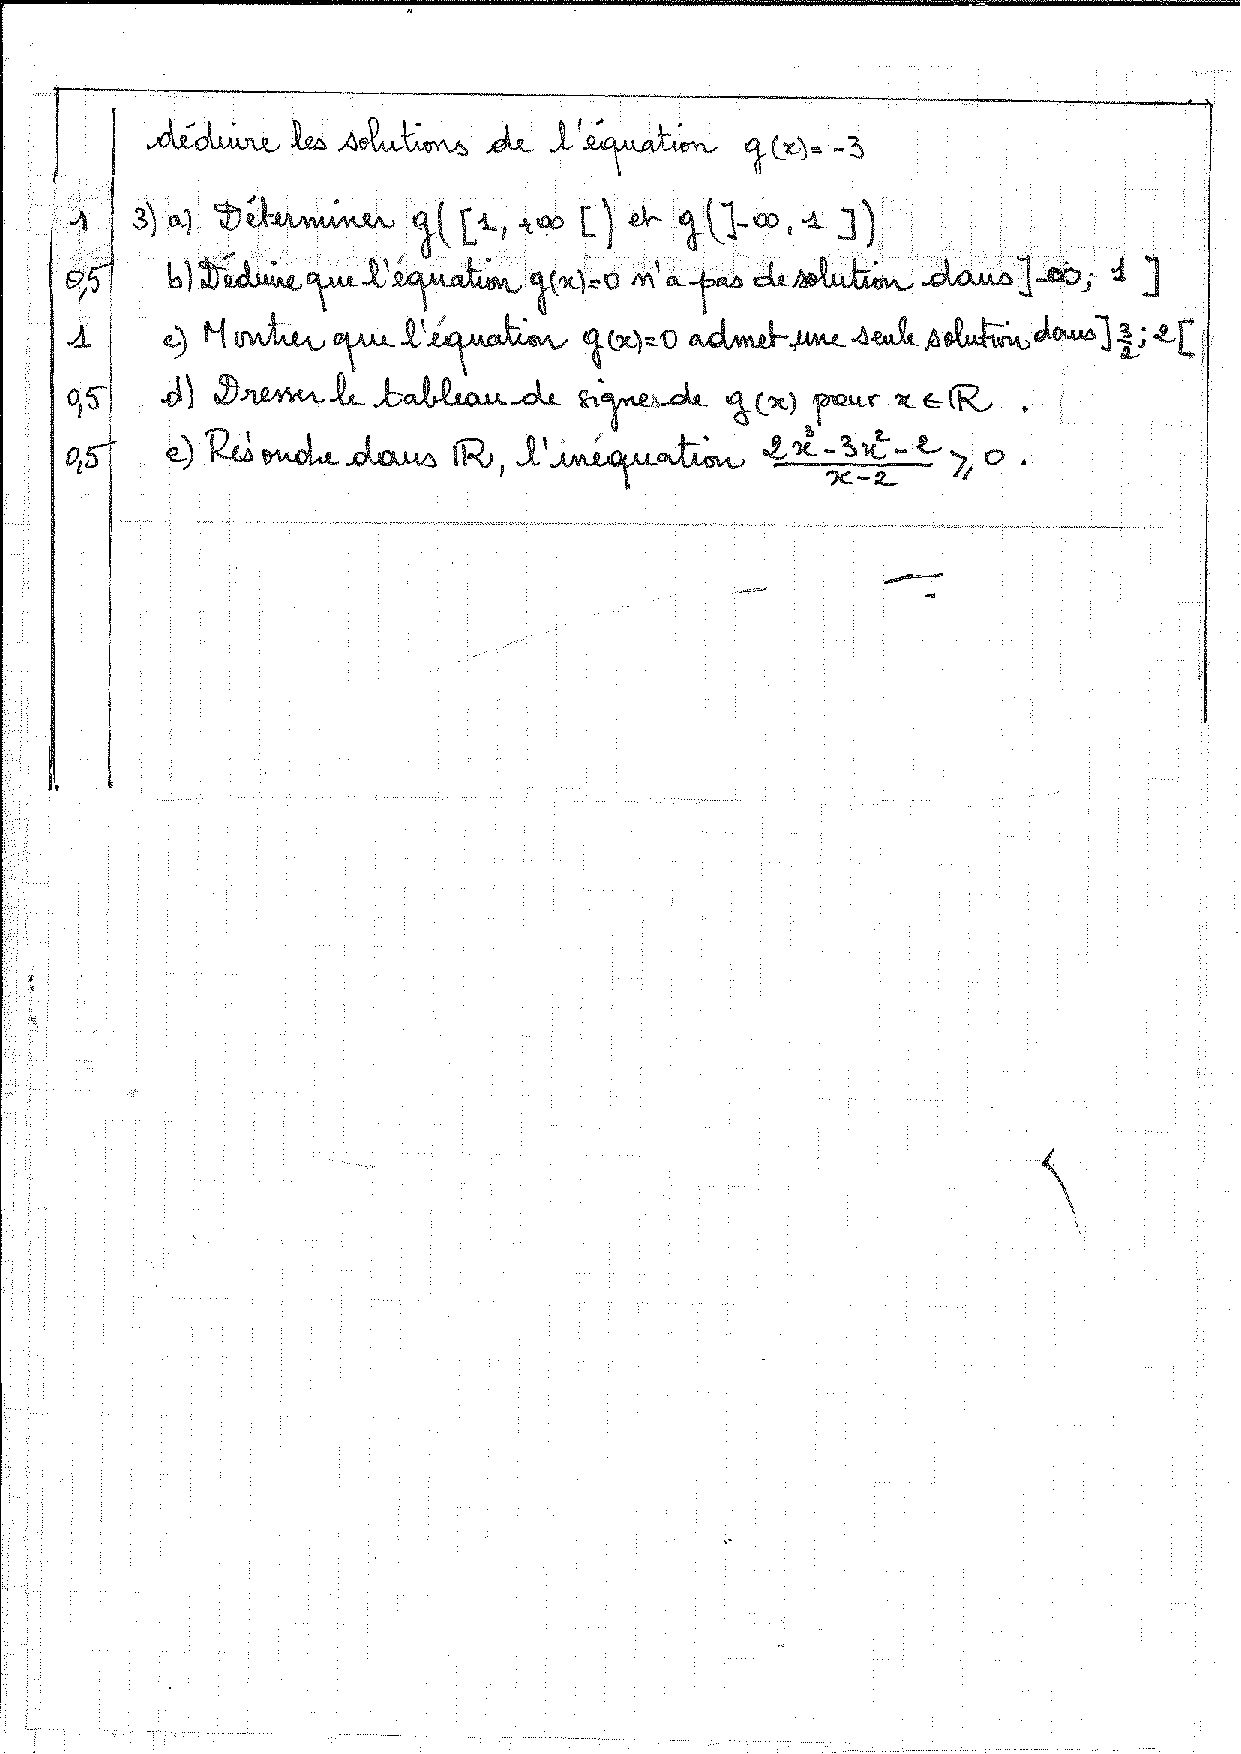 déduire les solutions de l'équation g(x)= -3
1 3) a) Déterminer g([1, +∞[) et g(]-∞, 1])
0,5 b) Déduire que l'équation g(x)=0 n'a pas de solution dans ]-∞; 1]
1 c) Montrer que l'équation g(x)=0 admet une seule solution dans ]3/2; 2[
0,5 d) Dresser le tableau de signes de g(x) pour x ∈ ℝ.
0,5 e) Résoudre dans ℝ, l'inéquation (2x³-3x²-2)/(x-2) ≥ 0.